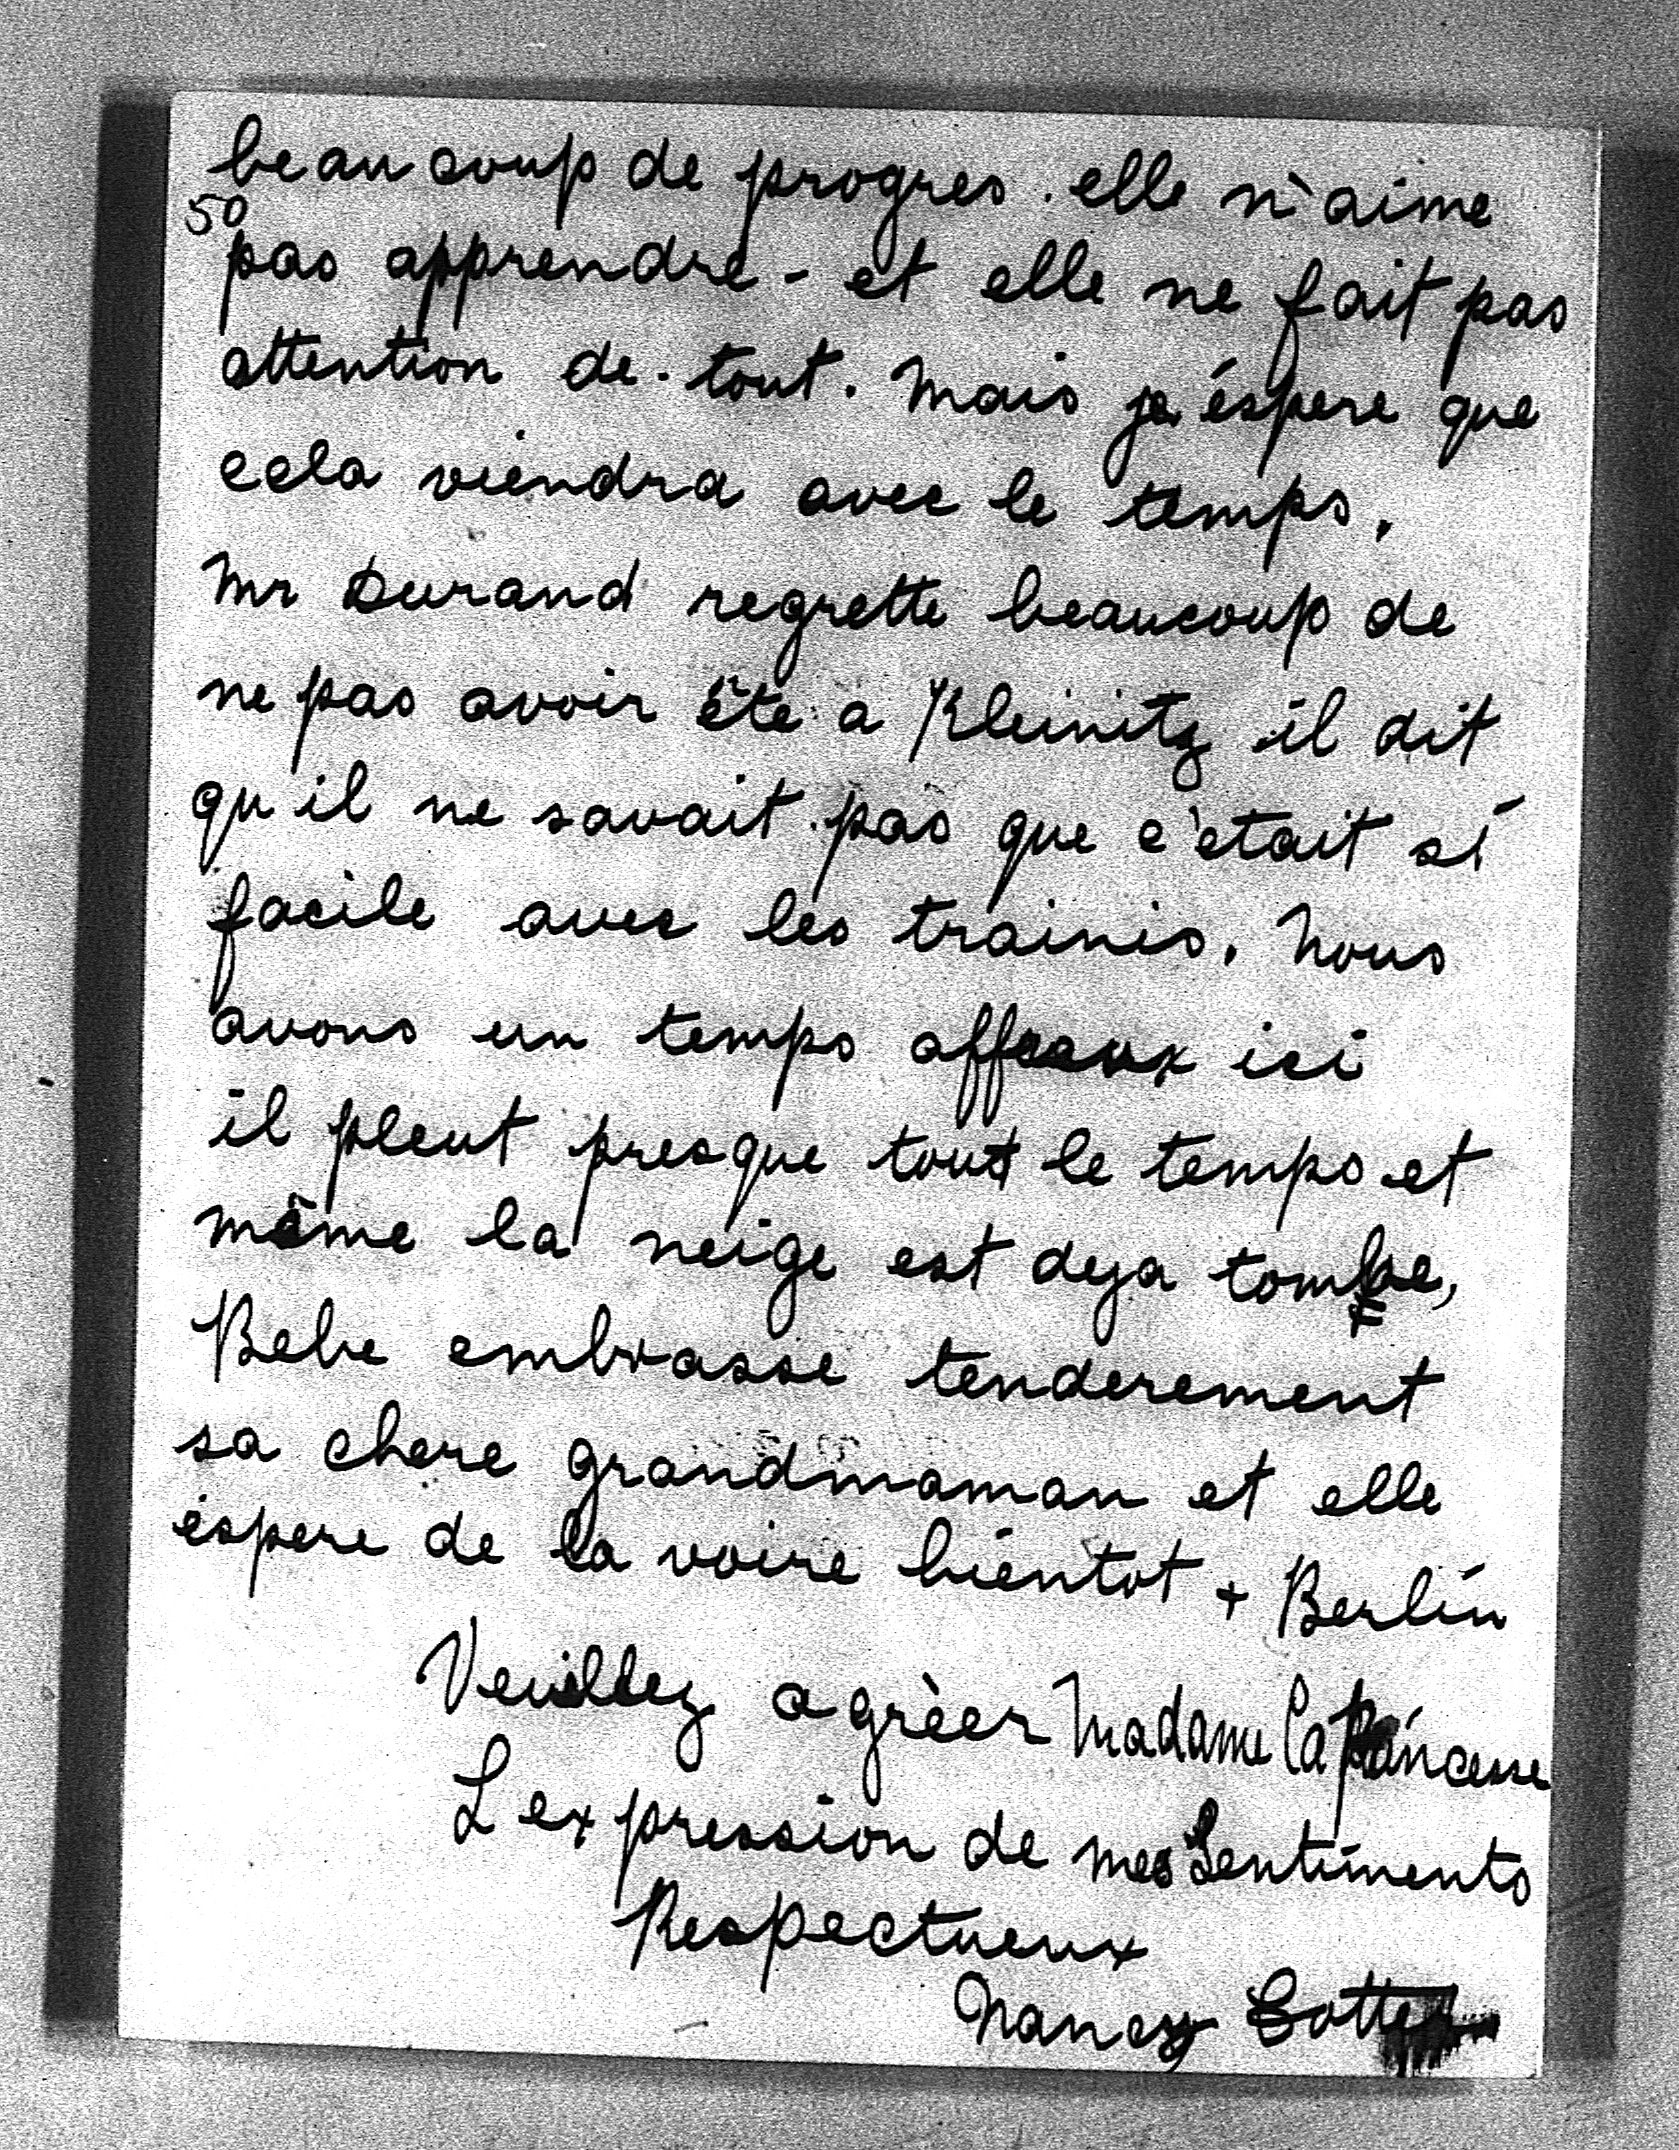 beaucoup de progres. elle n'aime
50
pas apprendre - et elle ne fait pas
attention de. tout. Mais je éspere que
cela viendra avec le temps.
Mr Durand regrette beaucoup de
ne pas avoir éte a Kleinitz il dit
qu'il ne savait pas que c'etait si
facile avec les trainis. Nous
avons un temps affreux ici
il pleut presque tout le temps et
même la neige est deja tombe,
Bebe embrasse tenderement
sa chere grandmaman et elle
éspere de la voire bientot + Berlin
Veuillez agrèer Madame la Princesse
L'expression de mes Sentiments
Respectueux
Nancy